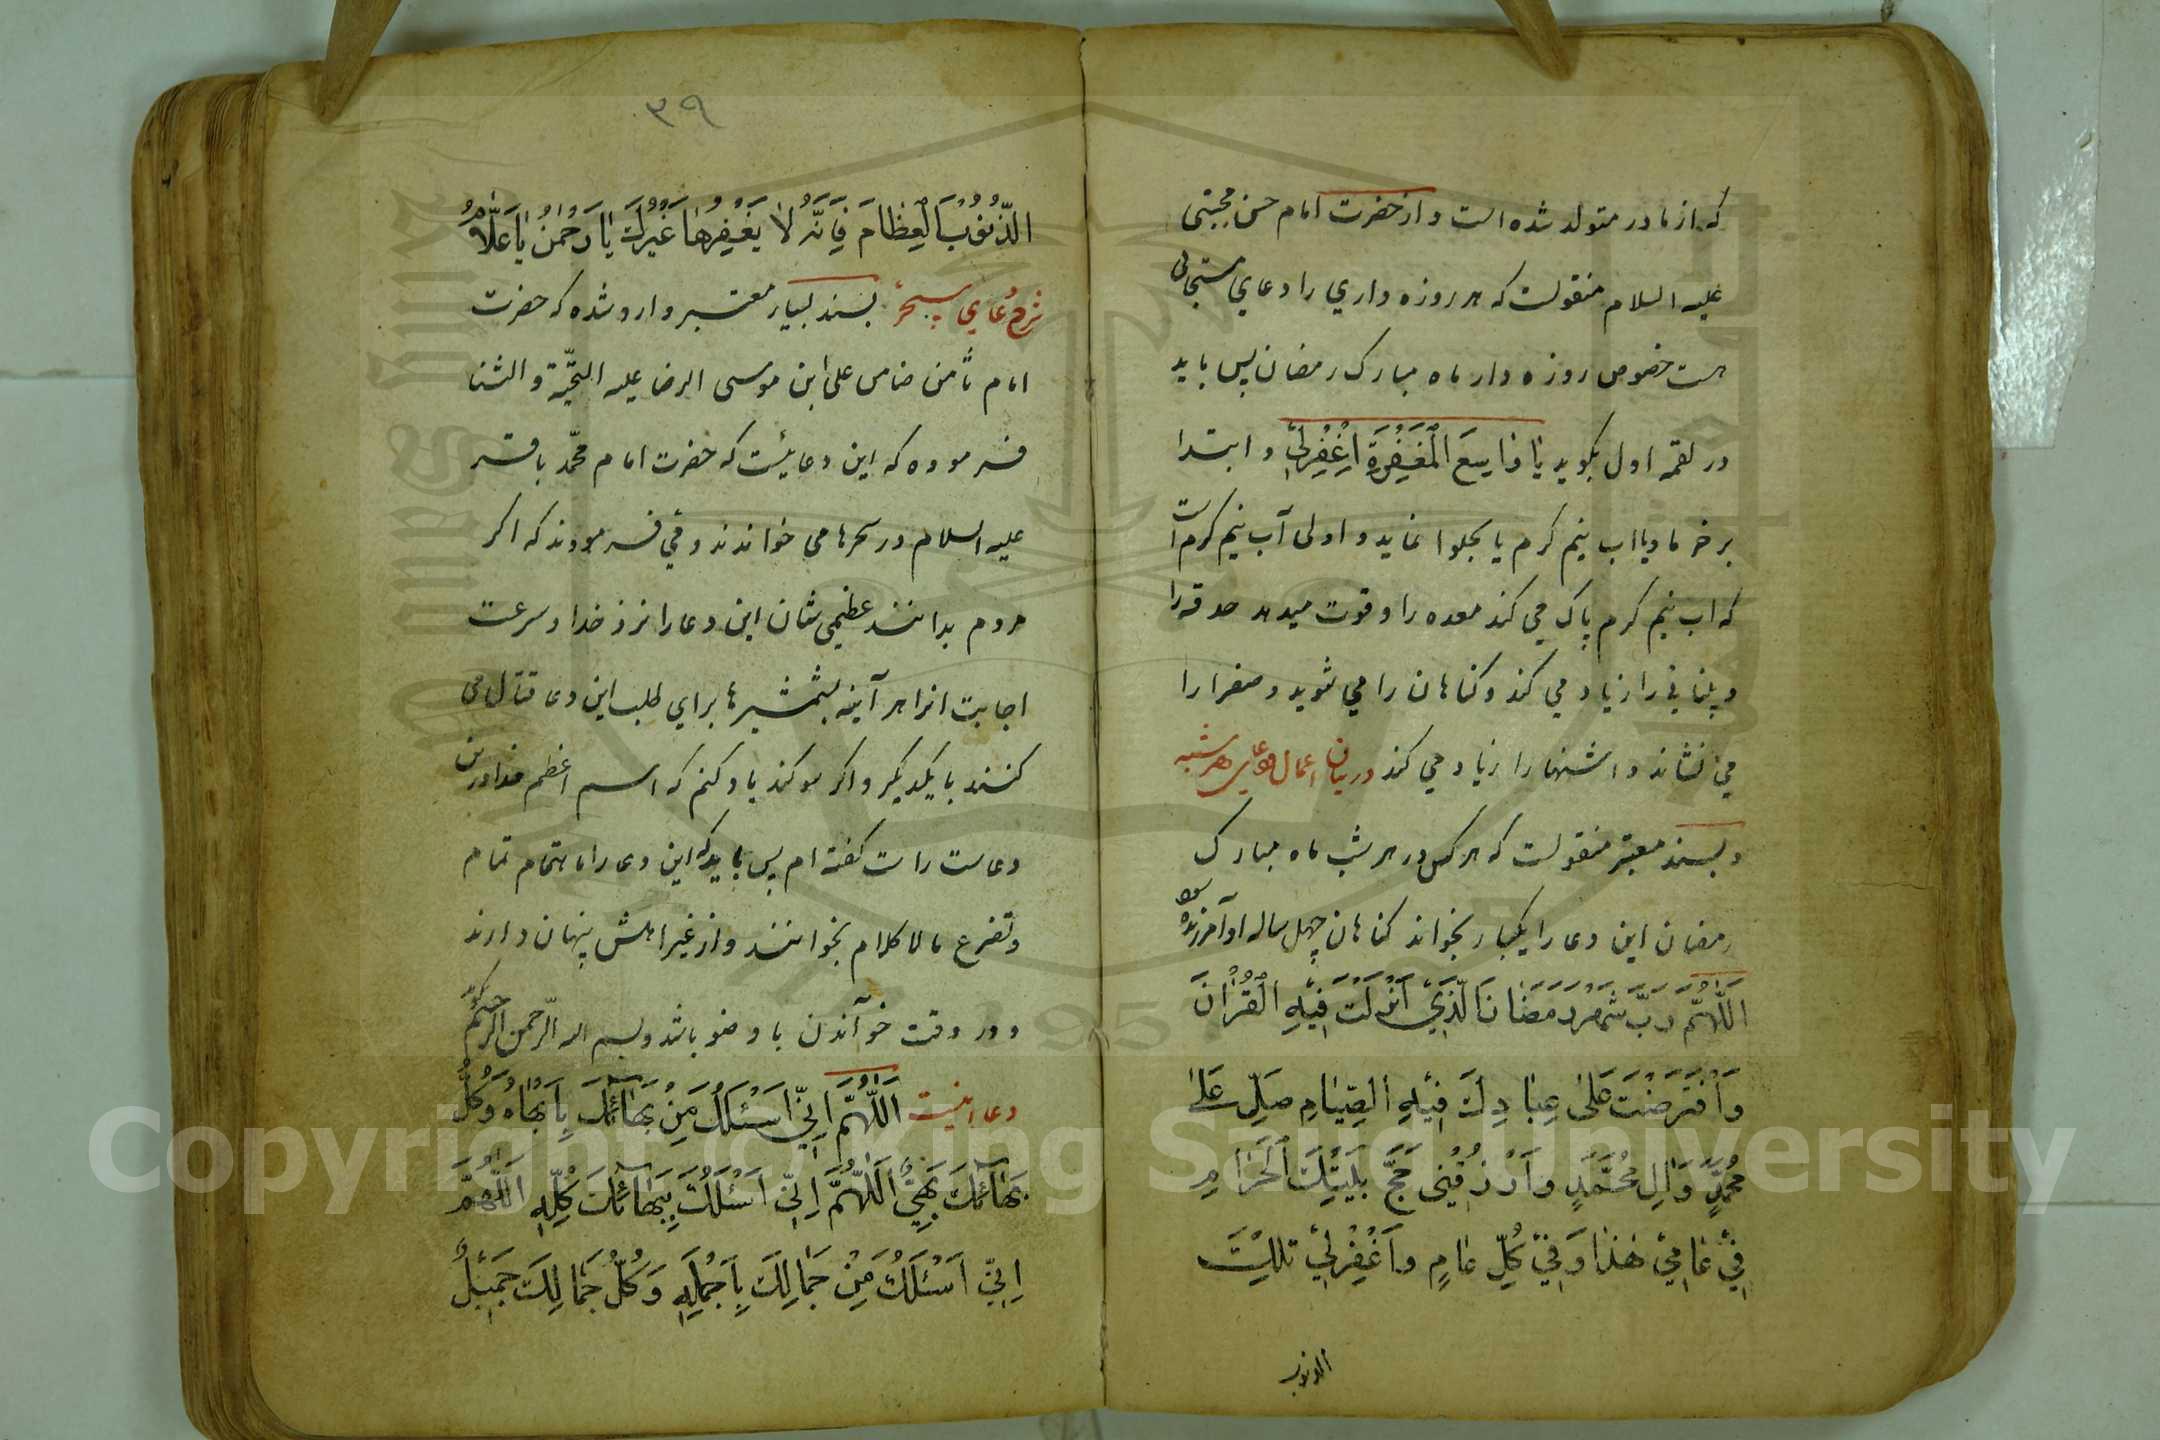 که از مادر متولد شده است و از حضرت امام حسن مجتبی
علیه السلام منقولست که هر روزه داری را دعای مستجابی
هست خصوص روزه دار ماه مبارک رمضان پس باید
در لقمه اول بکوید یَا وَاسِعَ الْمَغْفِرَةِ اِغْفِرْلِی و ابتدا
برخرما ویا اب نیم کرم یا بحلوا نماید و اولی آب نیم کرم است
که اب نیم کرم پاک می کند معده را و قوت میدهد حدقه را
و بینائی را زیاد می کند و کناهان را می شوید و صفرا را
می نشاند و اشتها را زیاد می کند در بیان اعمال دعای هر شبه
و بسند معتبر منقولست که هر کس در هر شب ماه مبارک
رمضان این دعا را یکبار بخواند کناهان چهل ساله او آمرزیده شود
اَللّٰهُمَّ رَبَّ شَهْرِ رَمَضَانَ الَّذِی اَنْزَلْتَ فِیهِ الْقُرْاٰنَ
وَافْتَرَضْتَ عَلٰی عِبَادِكَ فِیهِ الصِّیَامِ صَلِّ عَلیٰ
مُحَمَّدٍ وَاٰلِ مُحَمَّدٍ وَارْزُقْنِی حَجَّ بَیْتِكَ الْحَرَامِ
فِی عَامِی هٰذَا وَفِی کُلِّ عَامٍ وَاغْفِرْلِی تلكَ
الذنوب
۳۹
الذُّنُوبَ الْعِظَامَ فَاِنَّهُ لَا یَغْفِرُهَا غَیْرُكَ یَا رَحْمٰنُ یَا عَلَّامُ
شرح دعای سحر بسند بسیار معتبر وارد شده که حضرت
امام ثامن ضامن علی ابن موسی الرضا علیه التحیّة و الثنا
فرموده که این دعائیست که حضرت امام محمّد باقر
علیه السلام در سحرها می خواندند و می فرمودند که اکر
مردم بدانند عظیمی شان این دعا را نزد خدا و سرعت
اجابت انرا هر آینه بشمشیرها برای طلب این دعا قتال می
کنند با یکدیکر و اکر سوکند یاد کنم که اسم اعظم خدا در این
دعاست راست کفته ام پس باید که این دعا را باهتمام تمام
و تضرع مالا کلام بخوانند و از غیر اهلش پنهان دارند
و در وقت خوآندن با وضو باشد و بسم الله الرّحمن الرحیم بکوید
دعا اینست اَللّٰهُمَّ اِنِّی اَسْئَلُكَ مِنْ بَهَائِكَ بِاَبْهَاهُ وَكُلُّ
بَهَائِكَ بَهِیٌّ اَللّٰهُمَّ اِنِّی اَسْئَلُكَ بِبَهَائِكَ كُلِّهِ اَللّٰهُمَّ
اِنِّی اَسْئَلُكَ مِنْ جَمَالِكَ بِاَجْمَلِهِ وَكُلُّ جَمَالِكَ جَمِیلٌ
Copyright © King Saud University
1957